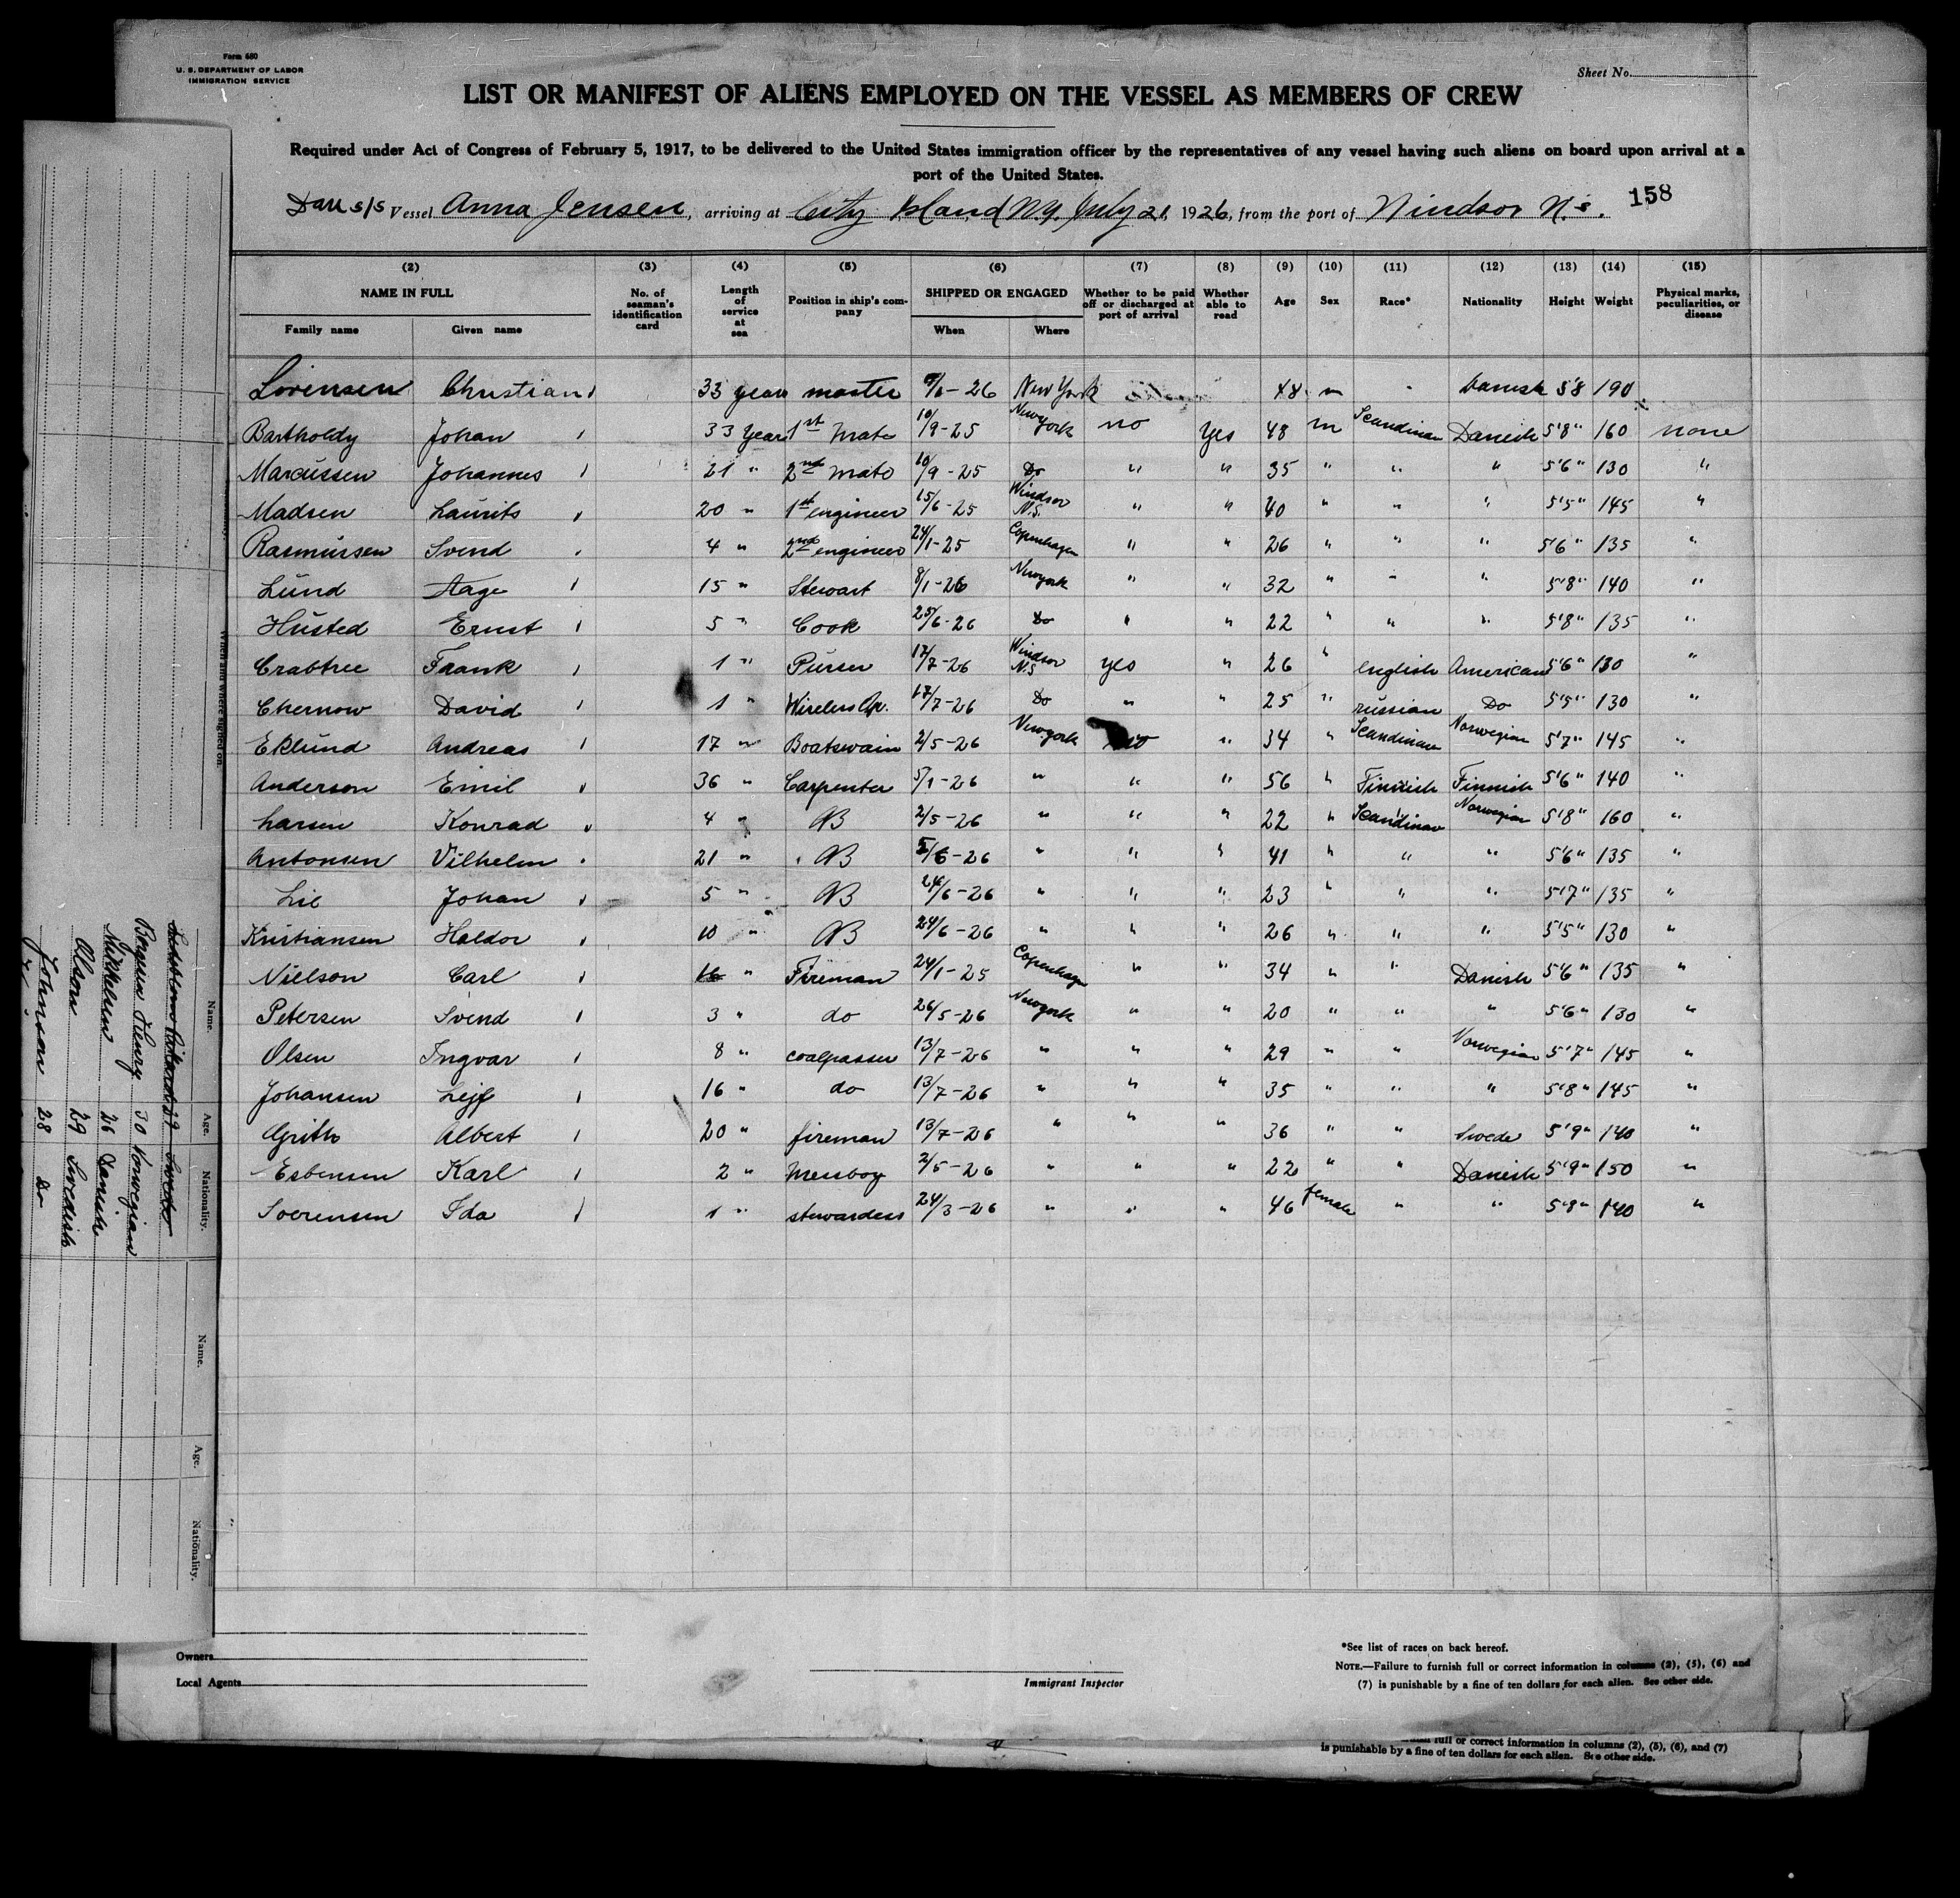 Form 680
U. S. DEPARTMENT OF LABOR
IMMIGRATION SERVICE
Sheet No.
LIST OR MANIFEST OF ALIENS EMPLOYED ON THE VESSEL AS MEMBERS OF CREW
Required under Act of Congress of February 5, 1917, to be delivered to the United States immigration officer by the representatives of any vessel having such aliens on board upon arrival at a
port of the United States.
Dan s/s Vessel Anna Jensen, arriving at City Island N.Y. July 21, 1926, from the port of Windsor N.S. 158
(2) (3) (4) (5) (6) (7) (8) (9) (10) (11) (12) (13) (14) (15)
NAME IN FULL Family name Given name No. of seaman's identification card Length of service at sea Position in ship's company SHIPPED OR ENGAGED When Where Whether to be paid off or discharged at port of arrival Whether able to read Age Sex Race* Nationality Height Weight Physical marks, peculiarities, or disease
Sorensen Christian 33 years master 8/1-26 New York 48 m Danish 5'8 190
Bartholdy Johan 33 Years 1st Mate 10/9-25 Newyork no Yes 48 m Scandinav Danish 5'8" 160 none
Marcussen Johannes 21 " 2nd Mate 10/9-25 Do " " 35 " " " 5'6" 130 "
Madsen Laurits 20 " 1st engineer 15/6-25 Windsor N.S. " " 40 " " " 5'5" 145 "
Rasmussen Svend 4 " 2nd engineer 24/1-25 Copenhagen " " 26 " " " 5'6" 135 "
Lund Aage 15 " Stewart 8/1-26 Newyork " " 32 " " " 5'8" 140 "
Husted Ernst 5 " Cook 25/6-26 Do " " 22 " " " 5'8" 135 "
Crabtree Frank 1 " Purser 17/7-26 Windsor N.S. yes " 26 " english American 5'6" 130 "
Chernow David 1 " Wireless Op. 17/7-26 Do " " 25 " russian Do 5'5" 130 "
Eklund Andreas 17 " Boatswain 2/5-26 Newyork no " 34 " Scandinav Norwegian 5'7" 145 "
Anderson Emil 36 " Carpenter 5/1-26 " " " 56 " Finnish Finnish 5'6" 140 "
Larsen Konrad 4 " AB 2/5-26 " " " 22 " Scandinav Norwegian 5'8" 160 "
Antonsen Vilhelm 21 " AB /6-26 " " " 41 " " " 5'6" 135 "
Lie Johan 5 " AB 24/6-26 " " " 23 " " " 5'7" 135 "
Kristiansen Haldor 10 " AB 24/6-26 " " " 26 " " " 5'5" 130 "
Nielson Carl 16 " Fireman 24/1-25 Copenhagen " " 34 " " Danish 5'6" 135 "
Petersen Svend 3 " do 26/5-26 Newyork " " 20 " " " 5'6" 130 "
Olsen Ingvar 8 " coalpasser 13/7-26 " " " 29 " " Norwegian 5'7" 145 "
Johansen Leif 16 " do 13/7-26 " " " 35 " " " 5'8" 145 "
Grith Albert 20 " fireman 13/7-26 " " " 36 " " Swede 5'9" 140 "
Esbensen Karl 2 " Messboy 2/5-26 " " " 22 " " Danish 5'9" 150 "
Soerensen Ida 1 " stewardess 24/3-26 " " " 46 female " " 5'8" 140 "
When and where signed on.
Name. Age. Nationality.
29 Swedes
Henry 30 Norwegian
Mikkelsen 26 Danish
Olson 29 Swedish
Johnson 28 Do
Name. Age. Nationality.
Owners
Local Agents
Immigrant Inspector
*See list of races on back hereof.
NOTE.—Failure to furnish full or correct information in columns (2), (5), (6) and
(7) is punishable by a fine of ten dollars for each alien. See other side.
full or correct information in columns (2), (5), (6), and (7)
is punishable by a fine of ten dollars for each alien. See other side.